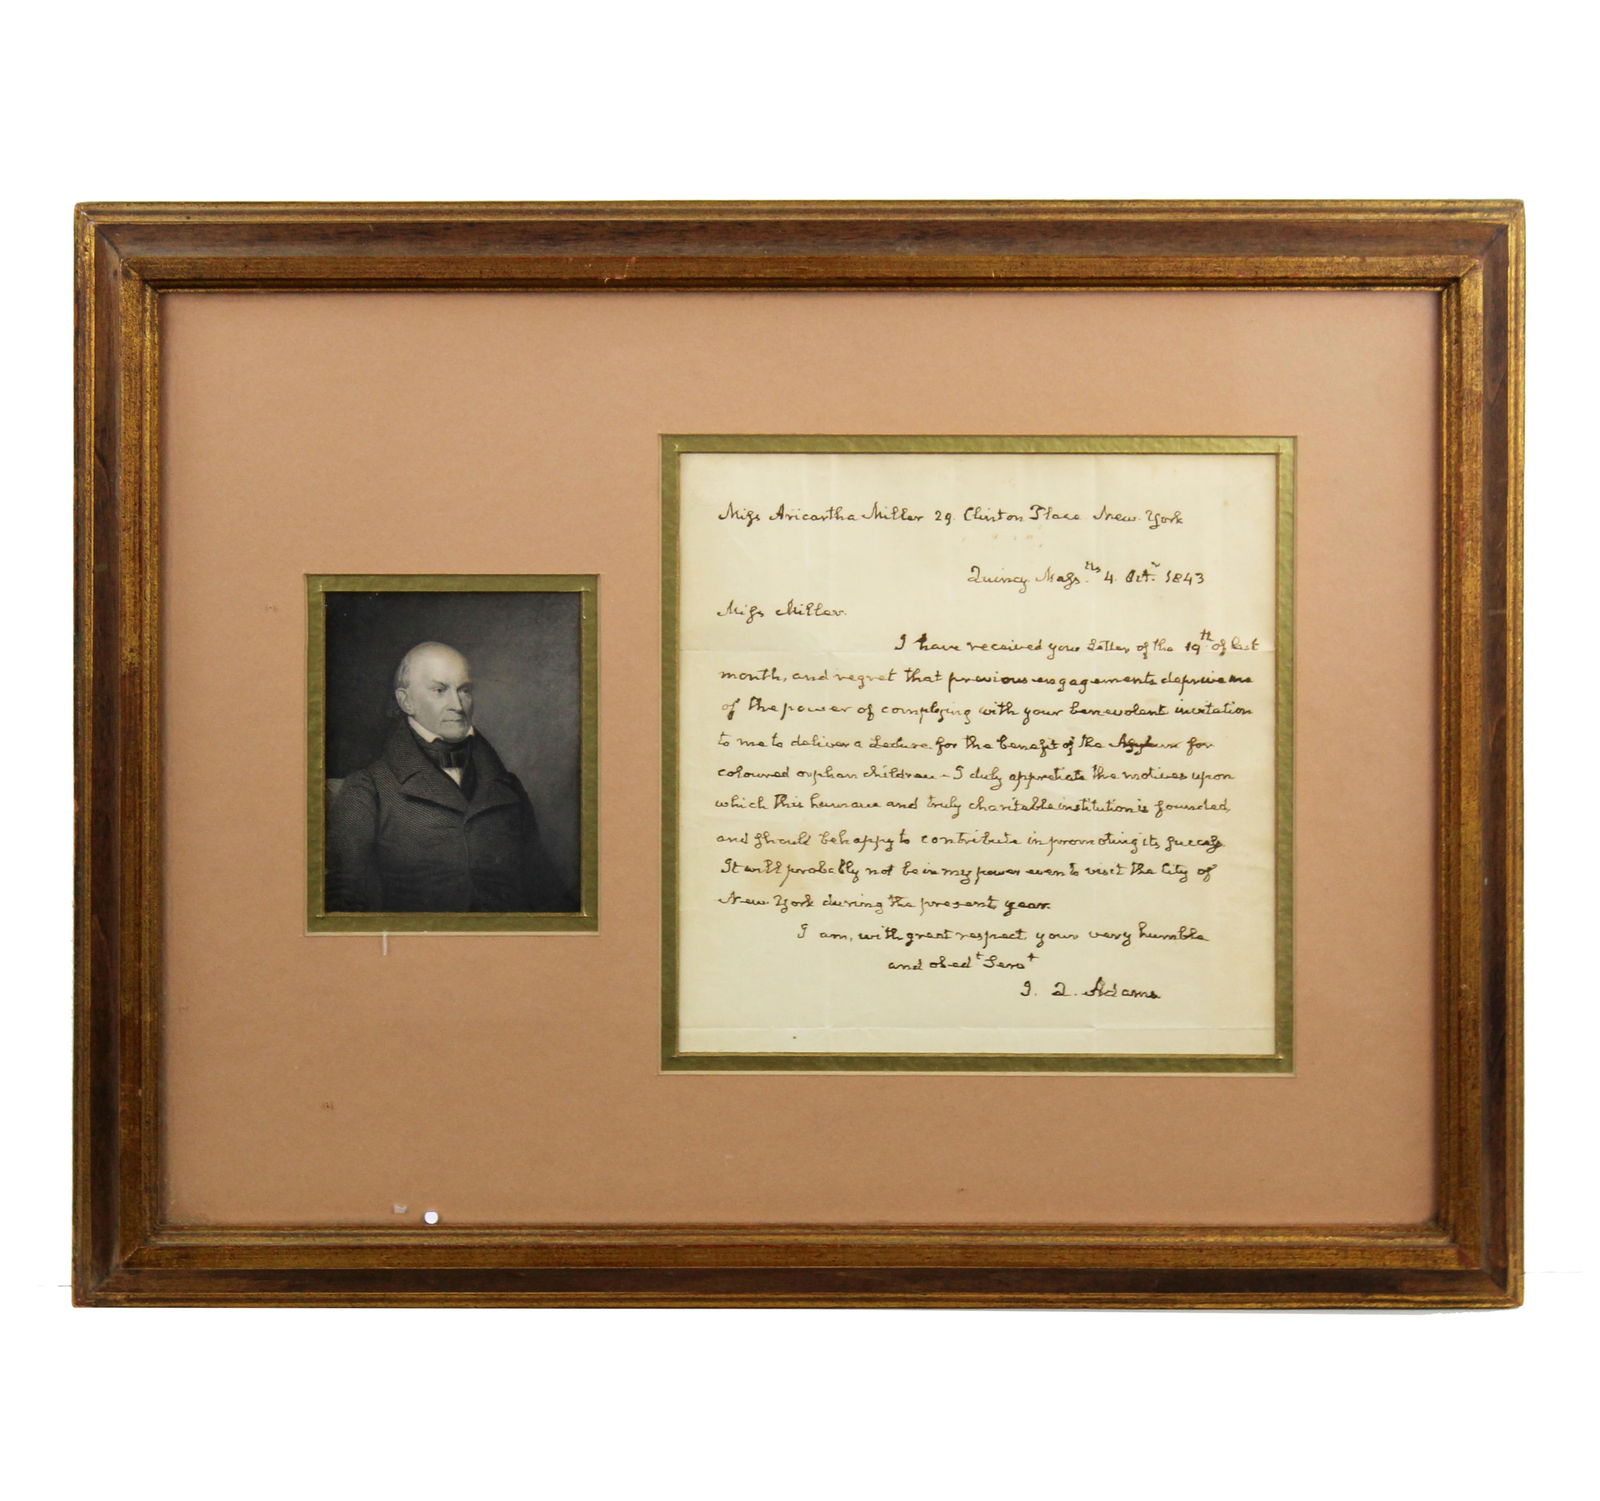 Miss Aricartha Miller 29. Clinton Place New-York
Quincy Mass.tts 4. Octr. 1843
Miss Miller.
I have received your Letter of the 19th. of last
month, and regret that previous engagements deprive me
of the power of complying with your benevolent invitation
to me to deliver a Lecture for the benefit of the Asylum for
coloured orphan children - I duly appretiate the motives upon
which this humane and truly charitable institution is founded,
and should be happy to contribute in promoting its success
It will probably not be in my power even to visit the City of
New-York during the present year.
I am, with great respect, your very humble
and obedt Servt
J. Q. Adams